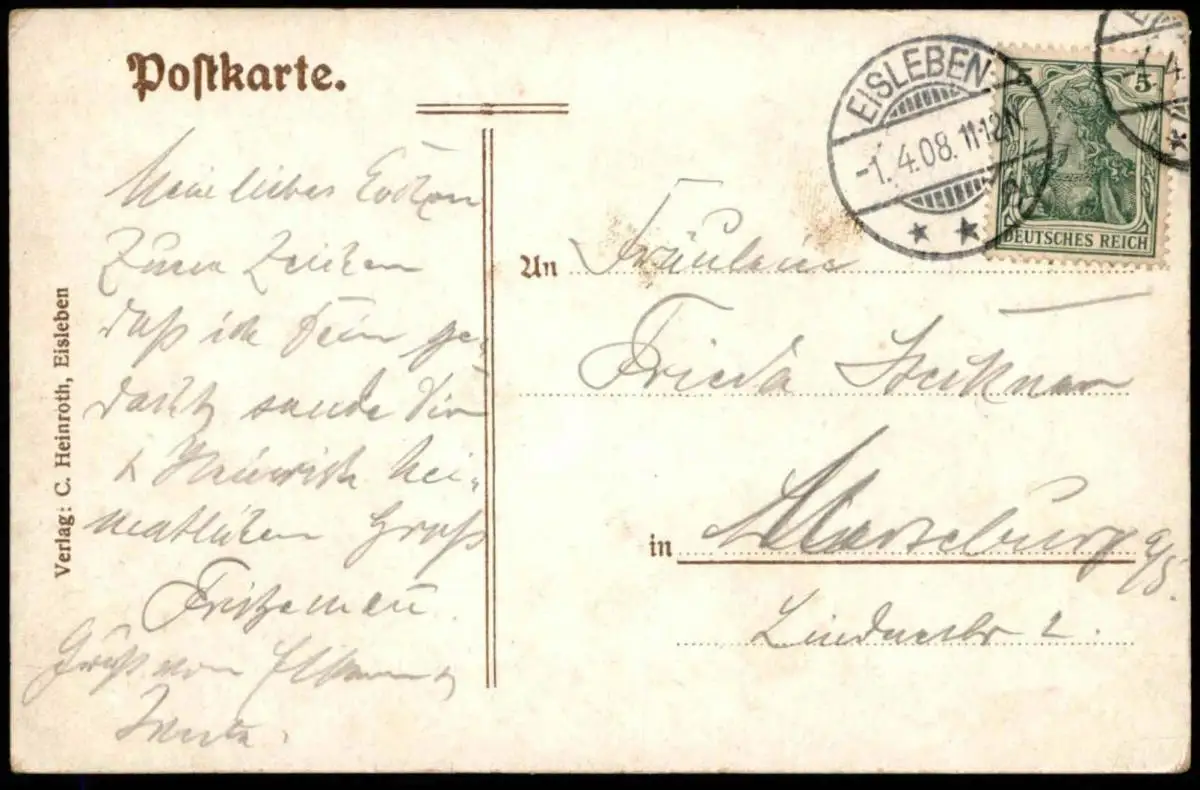 Postkarte.
EISLEBEN
-1.4.08.11-12N
2
5
DEUTSCHES REICH
-1.4.
Mein liebes
Zum Zeichen
daß ich Dein ge-
dacht, sende Dir
& Heinrich hei-
matlichen Gruß
Gruß von Eltern &
An Fräulein
Frieda
in Merseburg a/S.
Lindenstr 2.
Verlag: C. Heinroth, Eisleben